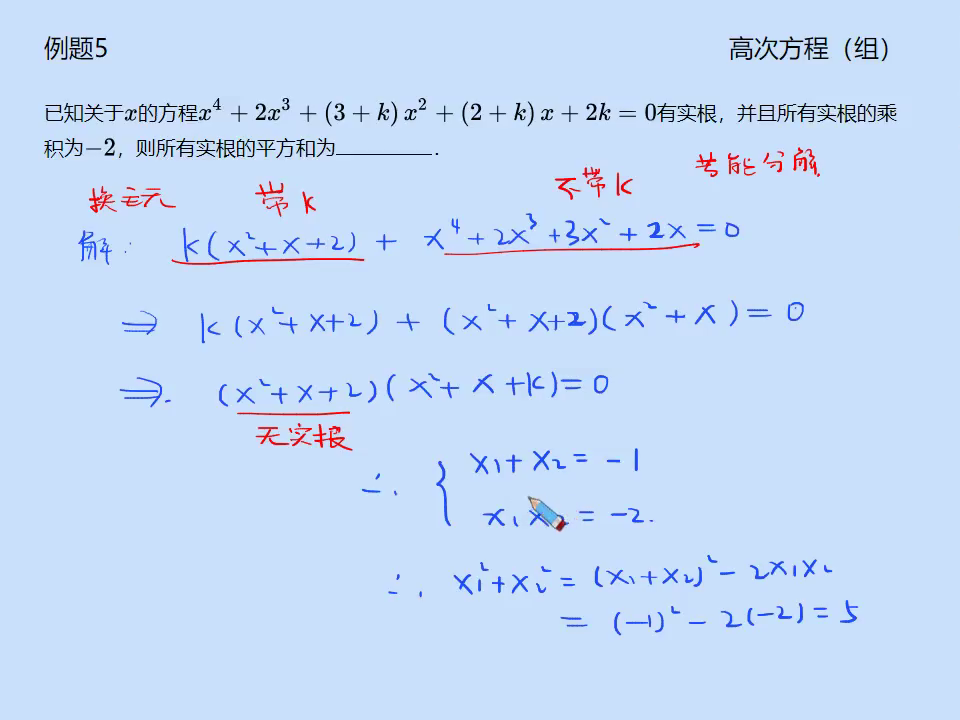 例题5
高次方程（组）
已知关于x的方程x⁴ + 2x³ + (3 + k) x² + (2 + k) x + 2k = 0有实根，并且所有实根的乘
积为−2，则所有实根的平方和为________．
换主元 带k 不带k 若能分解
解: k(x²+x+2) + x⁴+2x³+3x²+2x=0
⇒ k(x²+x+2) + (x²+x+2)(x²+x)=0
⇒. (x²+x+2)(x²+x+k)=0
无实根
∴. { x₁+x₂=-1
x₁x₂=-2.
∴. x₁²+x₂²=(x₁+x₂)²-2x₁x₂
=(-1)²-2(-2)=5